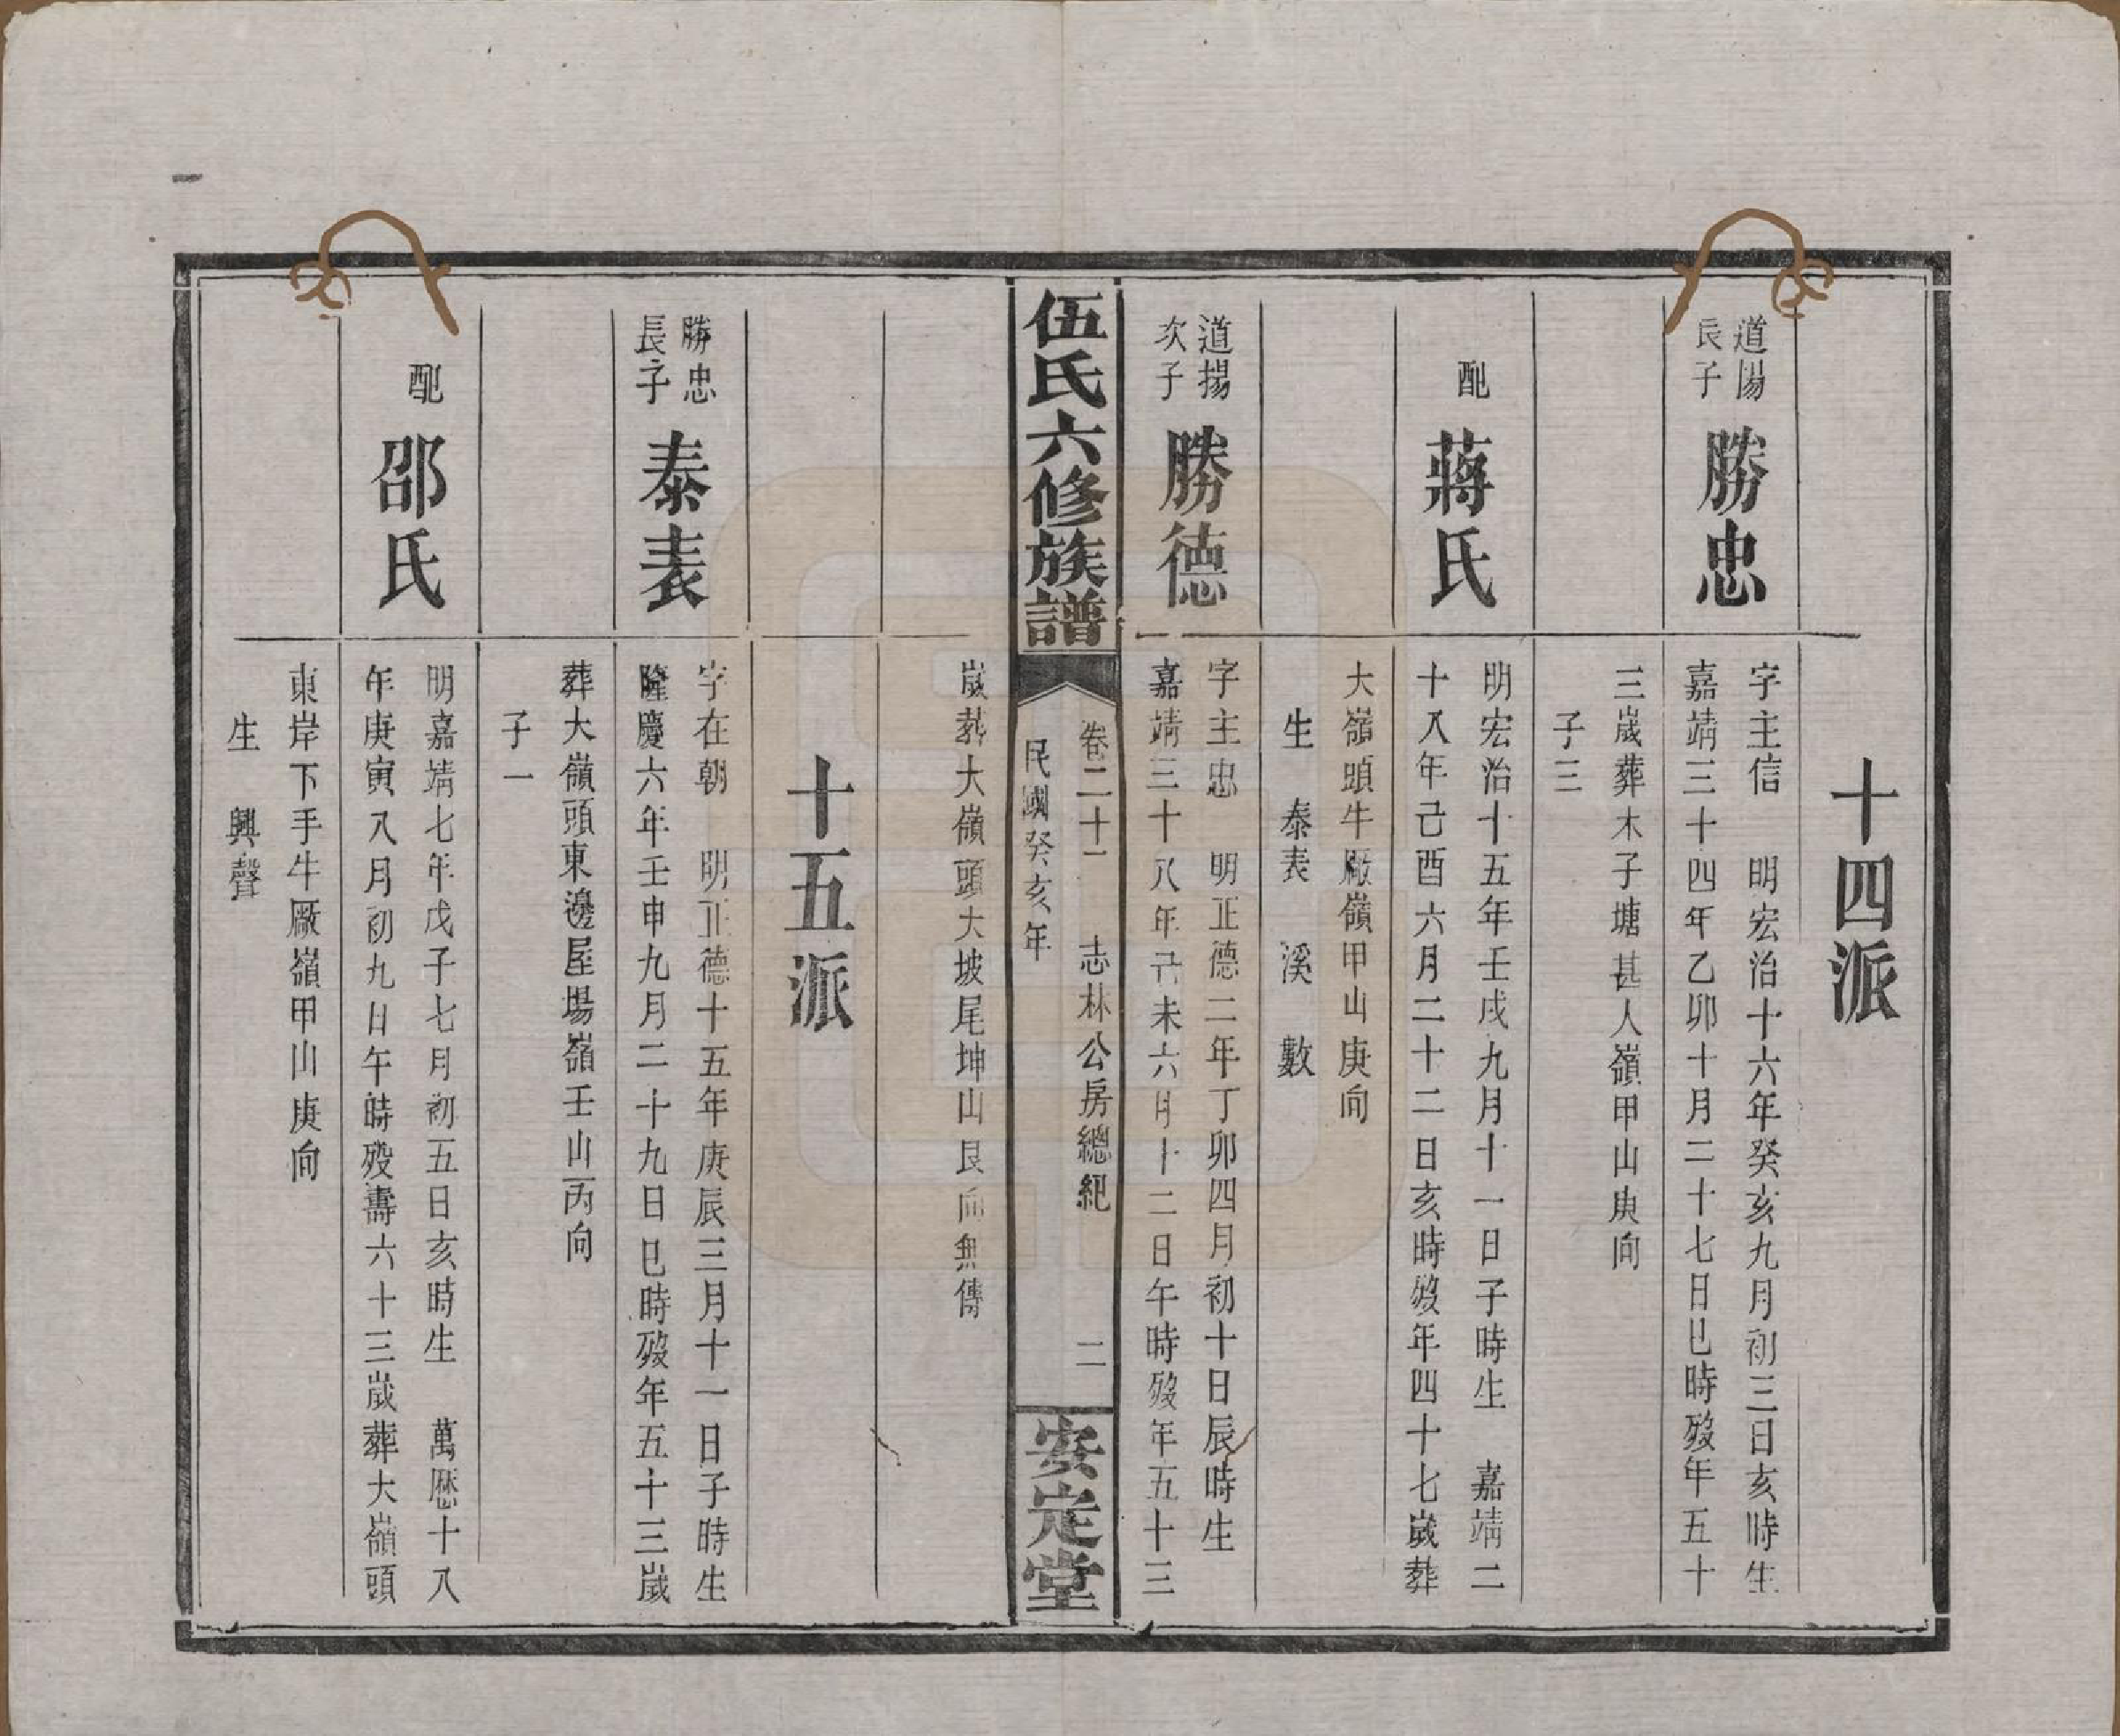 十四派
道陽
長子
勝忠
字主信　明宏治十六年癸亥九月初三日亥時生
嘉靖三十四年乙卯十月二十七日巳時歿年五十
三歲葬木子塘甚人嶺甲山庚向
子三
配
蔣氏
明宏治十五年壬戌九月十一日子時生　嘉靖二
十八年己酉六月二十二日亥時歿年四十七歲葬
大嶺頭牛厰嶺甲山庚向
生　泰表　溪　數
道揚
次子
勝德
字主忠　明正德二年丁卯四月初十日辰時生
嘉靖三十八年己未六月十二日午時歿年五十三
伍氏六修族譜
卷二十一　志林公房總紀　二
民國癸亥年
安定堂
歲葬大嶺頭大坡尾坤山艮向無傳
十五派
勝忠
長子
泰表
字在朝　明正德十五年庚辰三月十一日子時生
隆慶六年壬申九月二十九日巳時歿年五十三歲
葬大嶺頭東邊屋場嶺壬山丙向
子一
配
邵氏
明嘉靖七年戊子七月初五日亥時生　萬厯十八
年庚寅八月初九日午時歿壽六十三歲葬大嶺頭
東岸下手牛厰嶺甲山庚向
生　興聲